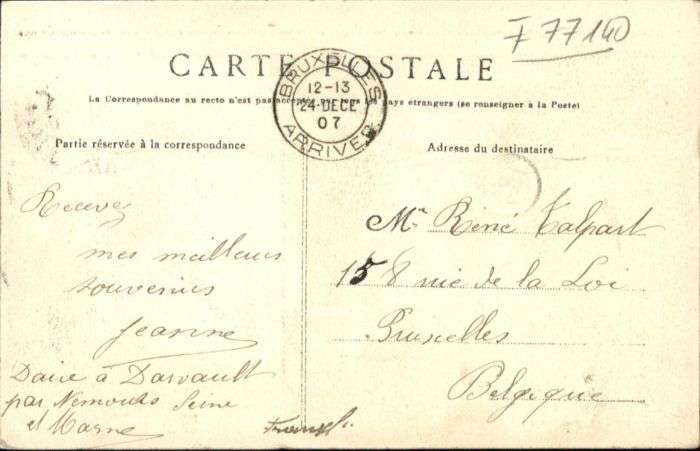 F 77140
CARTE POSTALE
BRUXELLES
12-13
24 DECE
07
ARRIVEE
La Correspondance au recto n'est pas acceptée par tous les pays étrangers (se renseigner à la Poste)
Partie réservée à la correspondance
Recevez
mes meilleurs
souvenirs
Jeanne
à Darvault
par Nemours Seine
et Marne
Adresse du destinataire
Mr René Talpart
158 rue de la Loi
Bruxelles
Belgique